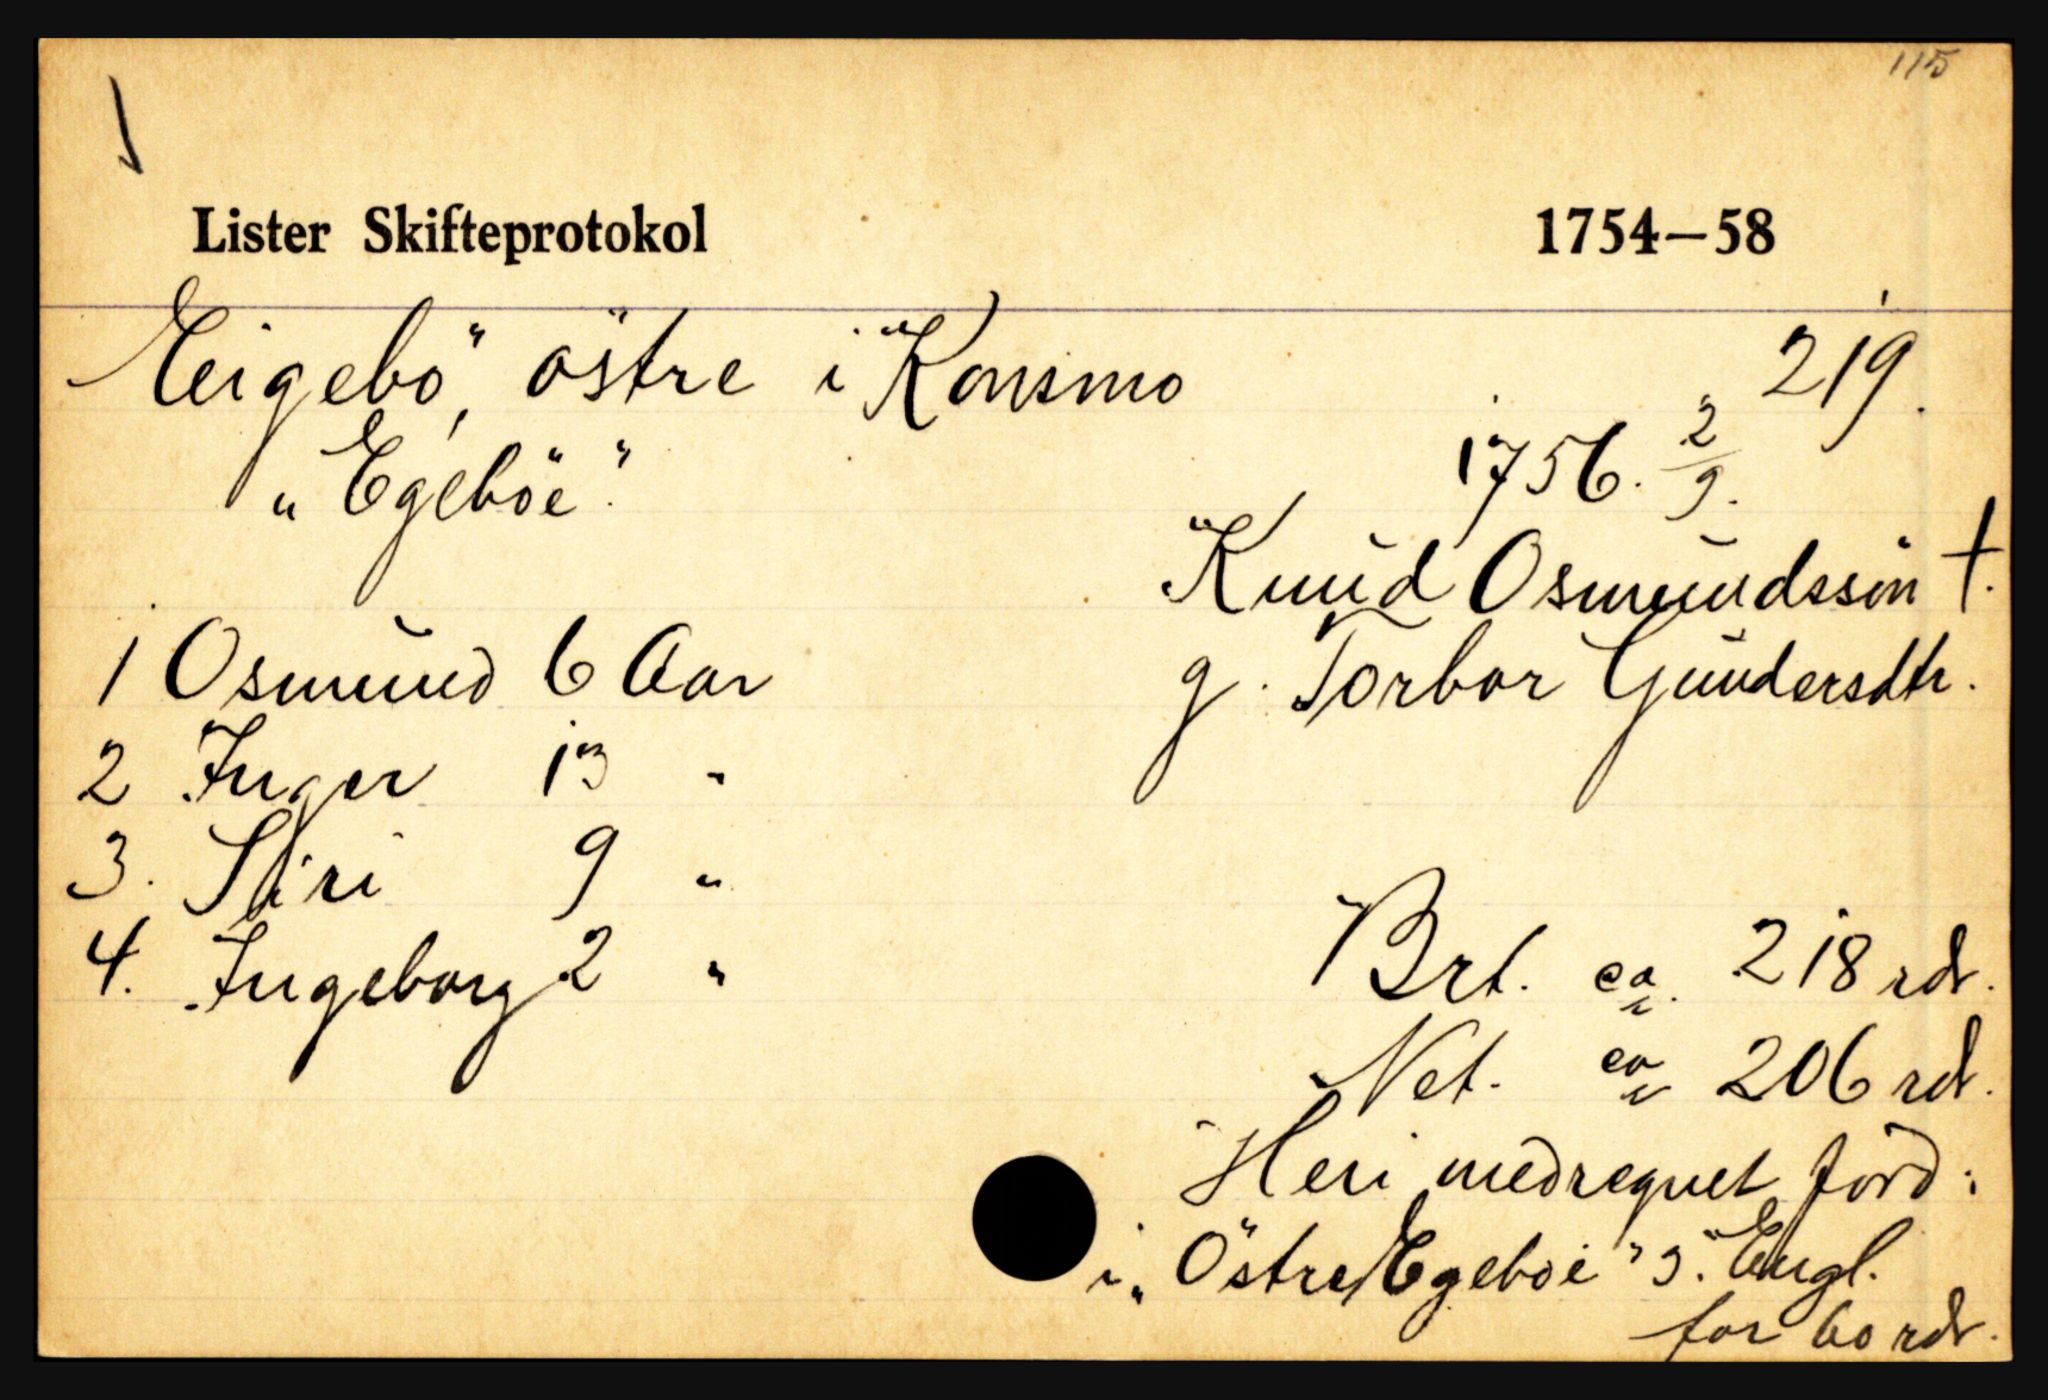 115
Lister Skifteprotokol 1754–58
Eigebö, östre i Konsmo 219.
„Egeböe" 1756. 2/9.
Knud Osmundssön †.
1 Osmund 6 Aar g. Torbor Gundersdtr.
2 Inger 13 "
3. Siri 9 "
4. Ingeborg 2 " Brt. ca. 218 rdr.
Net. ca 206 rd.
Heri medregnet jord:
i „Östre Egeboe" 3. Engl.
for 60 rdr.